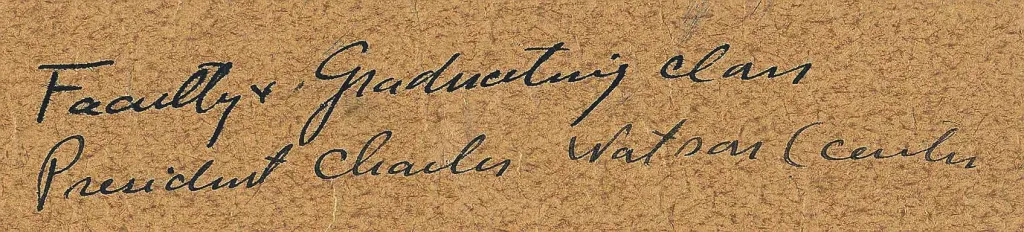 Faculty & Graduating class
President Charles Watson (center